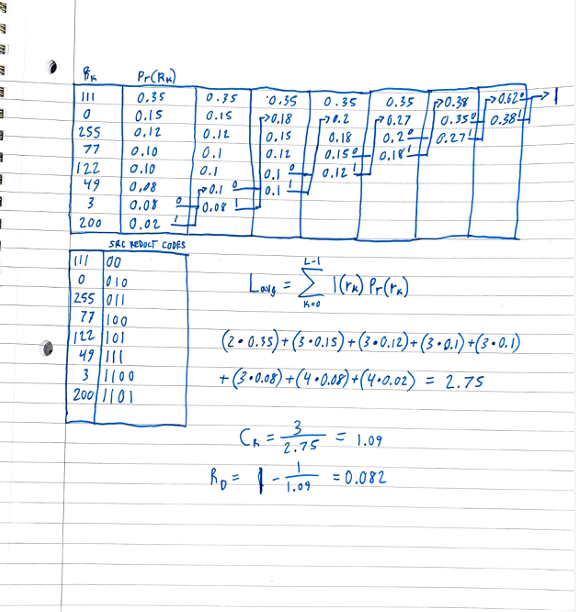 Rk Pr(Rk)
111 0.35 0.35 0.35 0.35 0.35 0.38 0.62 0 1
0 0.15 0.15 0.18 0.2 0.27 0.35 0 0.38 1
255 0.12 0.12 0.15 0.18 0.2 0 0.27 1
77 0.10 0.1 0.12 0.15 0 0.18 1
122 0.10 0.1 0.1 0 0.12 1
49 0.08 0.1 0 0.1 1
3 0.08 0 0.08 1
200 0.02 1
SRC REDUCT CODES
111 00
0 010
255 011
77 100
122 101
49 111
3 1100
200 1101
Lavg = L-1 ∑ K=0 l(rk) Pr(rk)
(2•0.35)+(3•0.15)+(3•0.12)+(3•0.1)+(3•0.1)
+(3•0.08)+(4•0.08)+(4•0.02) = 2.75
CR = 3/2.75 = 1.09
RD = 1 - 1/1.09 = 0.082